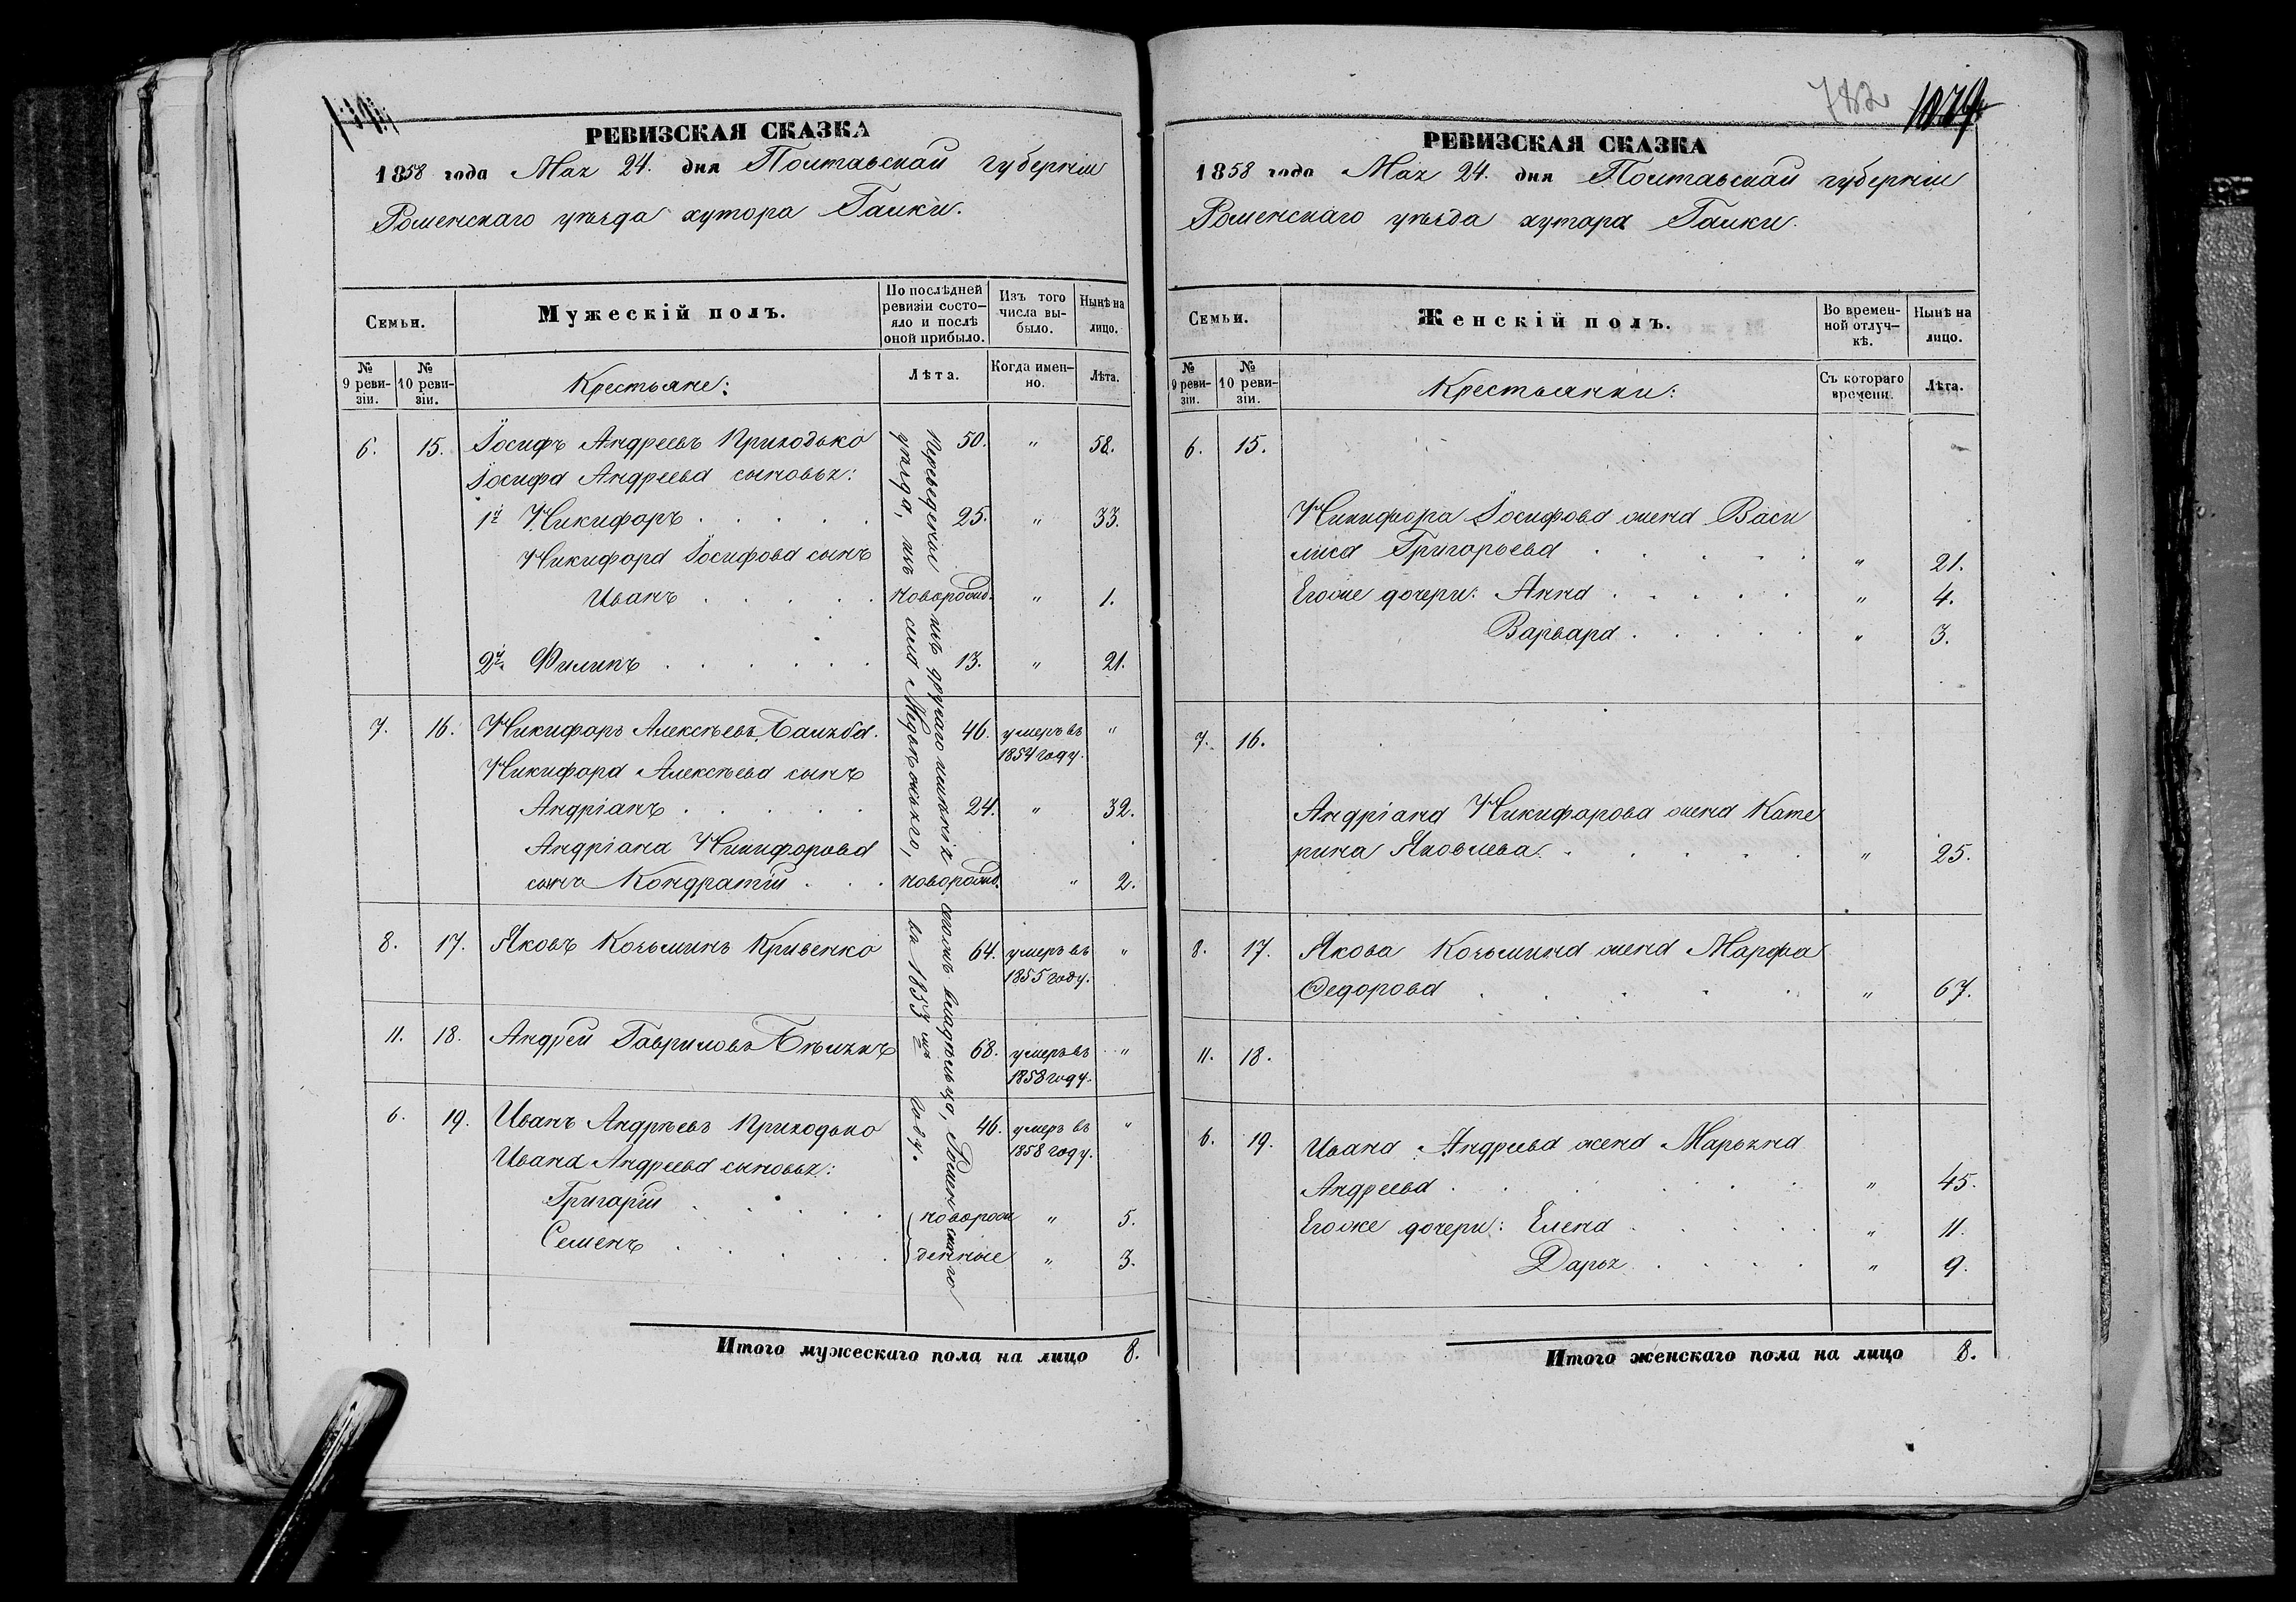 РЕВИЗСКАЯ СКАЗКА
1858 года Мая 24. дня Полтавской губерніи
Роменскаго уѣзда хутора Галки.
Семьи.
Мужескій полъ.
По послѣдней ревизіи состо-
яло и послѣ оной прибыло.
Изъ того числа вы-
было.
Нынѣ на лицо.
№ 9 реви-
зіи.
№ 10 реви-
зіи.
Крестьяне:
Лѣта.
Когда имен-
но.
Лѣта.
6. 15. Іосифъ Андреевъ Приходько 50. " 58.
Іосифа Андреева сыновья:
1й Никифоръ 25. " 33.
Никифора Іосифова сынъ
Иванъ новорожд. " 1.
2й Филипъ 13. " 21.
7. 16. Никифоръ Алексѣевъ 46. умеръ въ "
1854 году.
Никифора Алексѣева сынъ
Андріанъ 24. " 32.
Андріана Никифорова
сынъ Кондратій новорожд. " 2.
8. 17. Яковъ Козьминъ Кривенко 64. умеръ въ "
1855 году.
11. 18. Андрей Гавриловъ 68. умеръ въ "
1858 году.
6. 19. Иванъ Андрѣевъ Приходько 46. умеръ въ "
1858 году.
Ивана Андреева сыновья:
Григорій новорож " 5.
Семенъ денные " 3.
Переведены изъ другаго имѣнія сегожъ владѣльца, Роменскаго
уѣзда, изъ села въ 1853 мъ году.
Итого мужескаго пола на лицо 8.
782
1079
РЕВИЗСКАЯ СКАЗКА
1858 года Мая 24. дня Полтавской губерніи
Роменскаго уѣзда хутора Галки.
Семьи.
Женскій полъ.
Во времен-
ной отлуч-
кѣ.
Нынѣ на лицо.
№ 9 реви-
зіи.
№ 10 реви-
зіи.
Крестьянки:
Съ котораго времени.
Лѣта.
6. 15.
Никифора Іосифова жена Васи
лиса Григорьева " 21.
Егоже дочери: Анна " 4.
Варвара " 3.
7. 16.
Андріана Никифорова жена Кате
рина Яковлева " 25.
8. 17. Якова Козьмина жена Марфа
Федорова " 67.
11. 18.
6. 19. Ивана Андреева жена Марьяна
Андреева " 45.
Егоже дочери: Елена " 11.
Дарья " 9.
Итого женскаго пола на лицо 8.